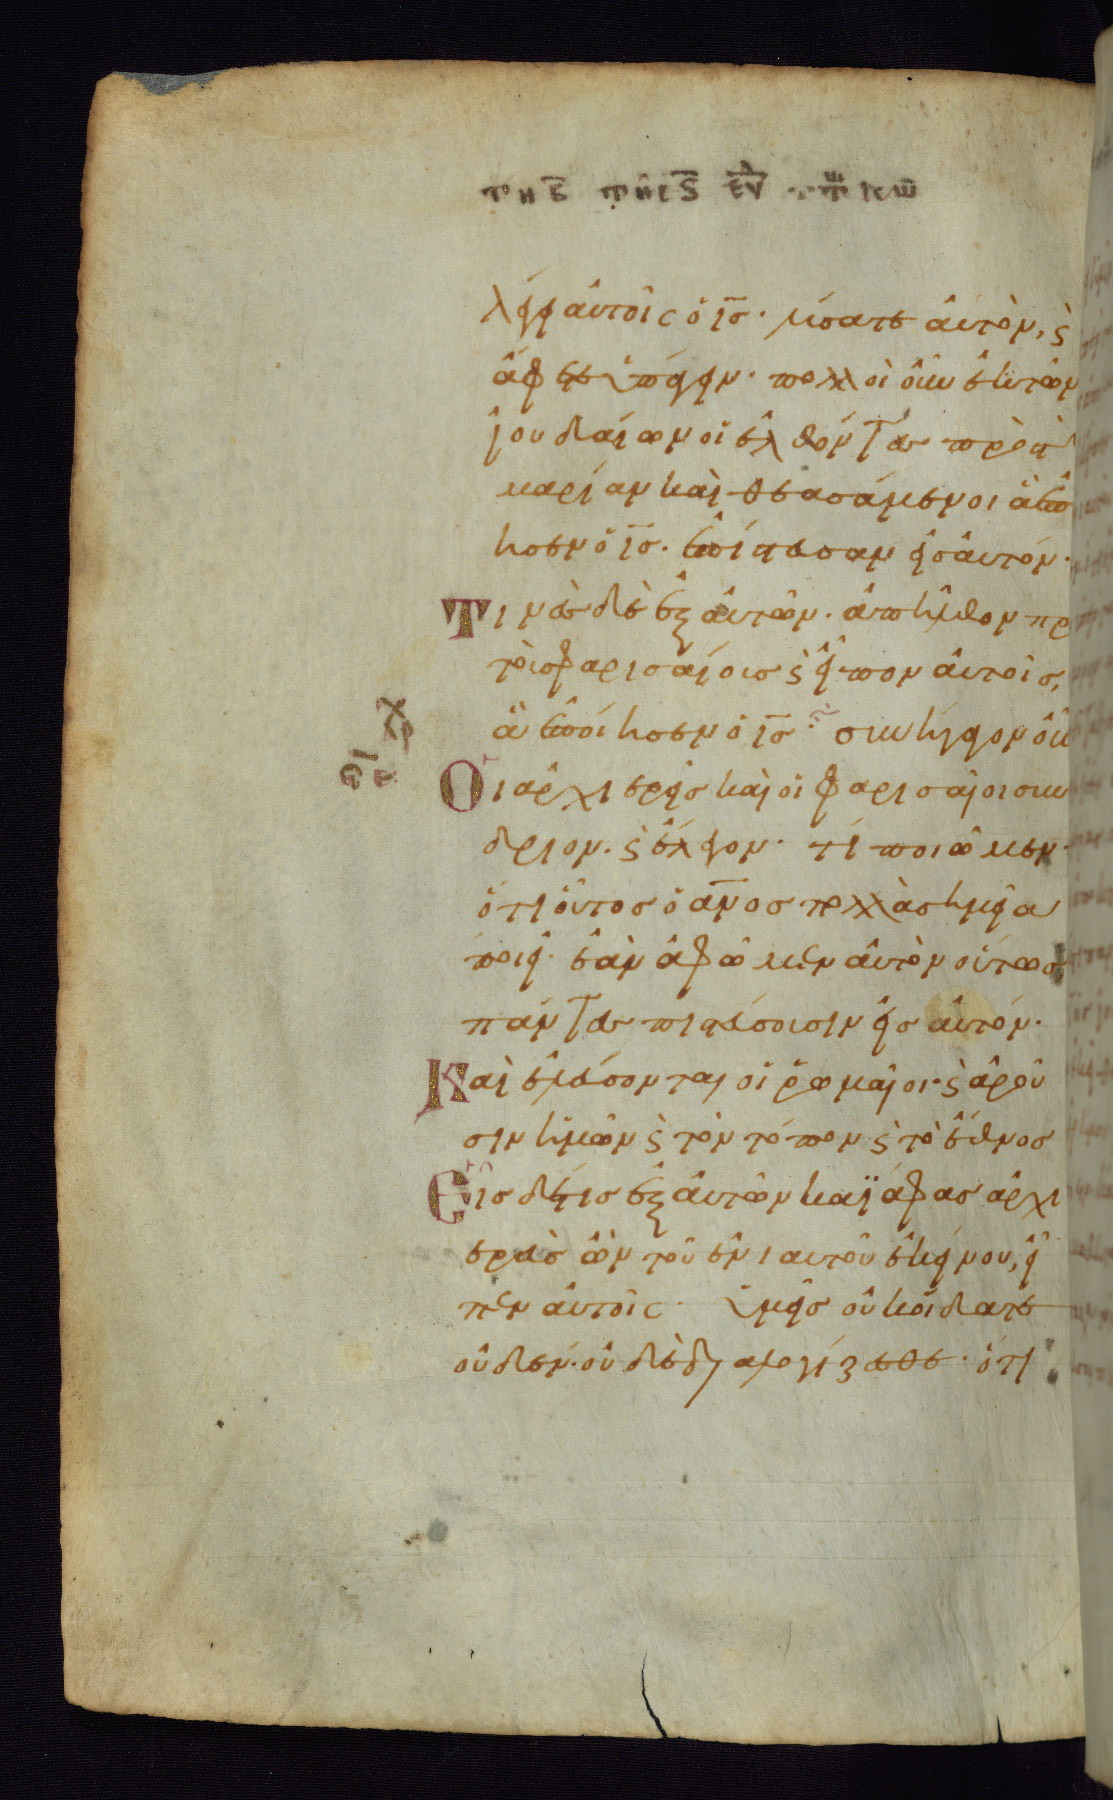 λέγει αὐτοῖς ὁ ι̅ς̅· λύσατε αὐτὸν, ϛ
ἄφετε ὑπάγειν· πολλοὶ οὖν ἐκ τῶν
ἰουδαίων οἱ ἐλθόντες πρὸς τ
μαρίαν καὶ θεασάμενοι ἃ ἐποί
ησεν ὁ ι̅ς̅· ἐπίστευσαν εἰς αὐτόν·
Τινὲς δὲ ἐξ αὐτῶν· ἀπῆλθον πρ
τοὺς φαρισαίους ϛ εἶπον αὐτοῖς,
ἃ ἐποίησεν ὁ ι̅ς̅· συνήγαγον οὖν
Οἱ ἀρχιερεῖς καὶ οἱ φαρισαῖοι συν
δριον· ϛ ἔλεγον· τί ποιοῦμεν·
ὅτι οὗτος ὁ α̅ν̅ος πολλὰ σημεῖα
ποιεῖ· ἐὰν ἀφῶμεν αὐτὸν οὕτως
πάντες πιστεύσουσιν εἰς αὐτόν·
Καὶ ἐλεύσονται οἱ ῥωμαῖοι· ϛ ἀροῦ
σιν ἡμῶν ϛ τὸν τόπον ϛ τὸ ἔθνος
Εἷς δέ τις ἐξ αὐτῶν καϊάφας ἀρχι
ερεὺς ὢν τοῦ ἐνιαυτοῦ ἐκείνου, εἶ
πεν αὐτοῖς· ὑμεῖς οὐκ οἴδατε
οὐδέν· οὐδὲ διαλογίζεσθε· ὅτι